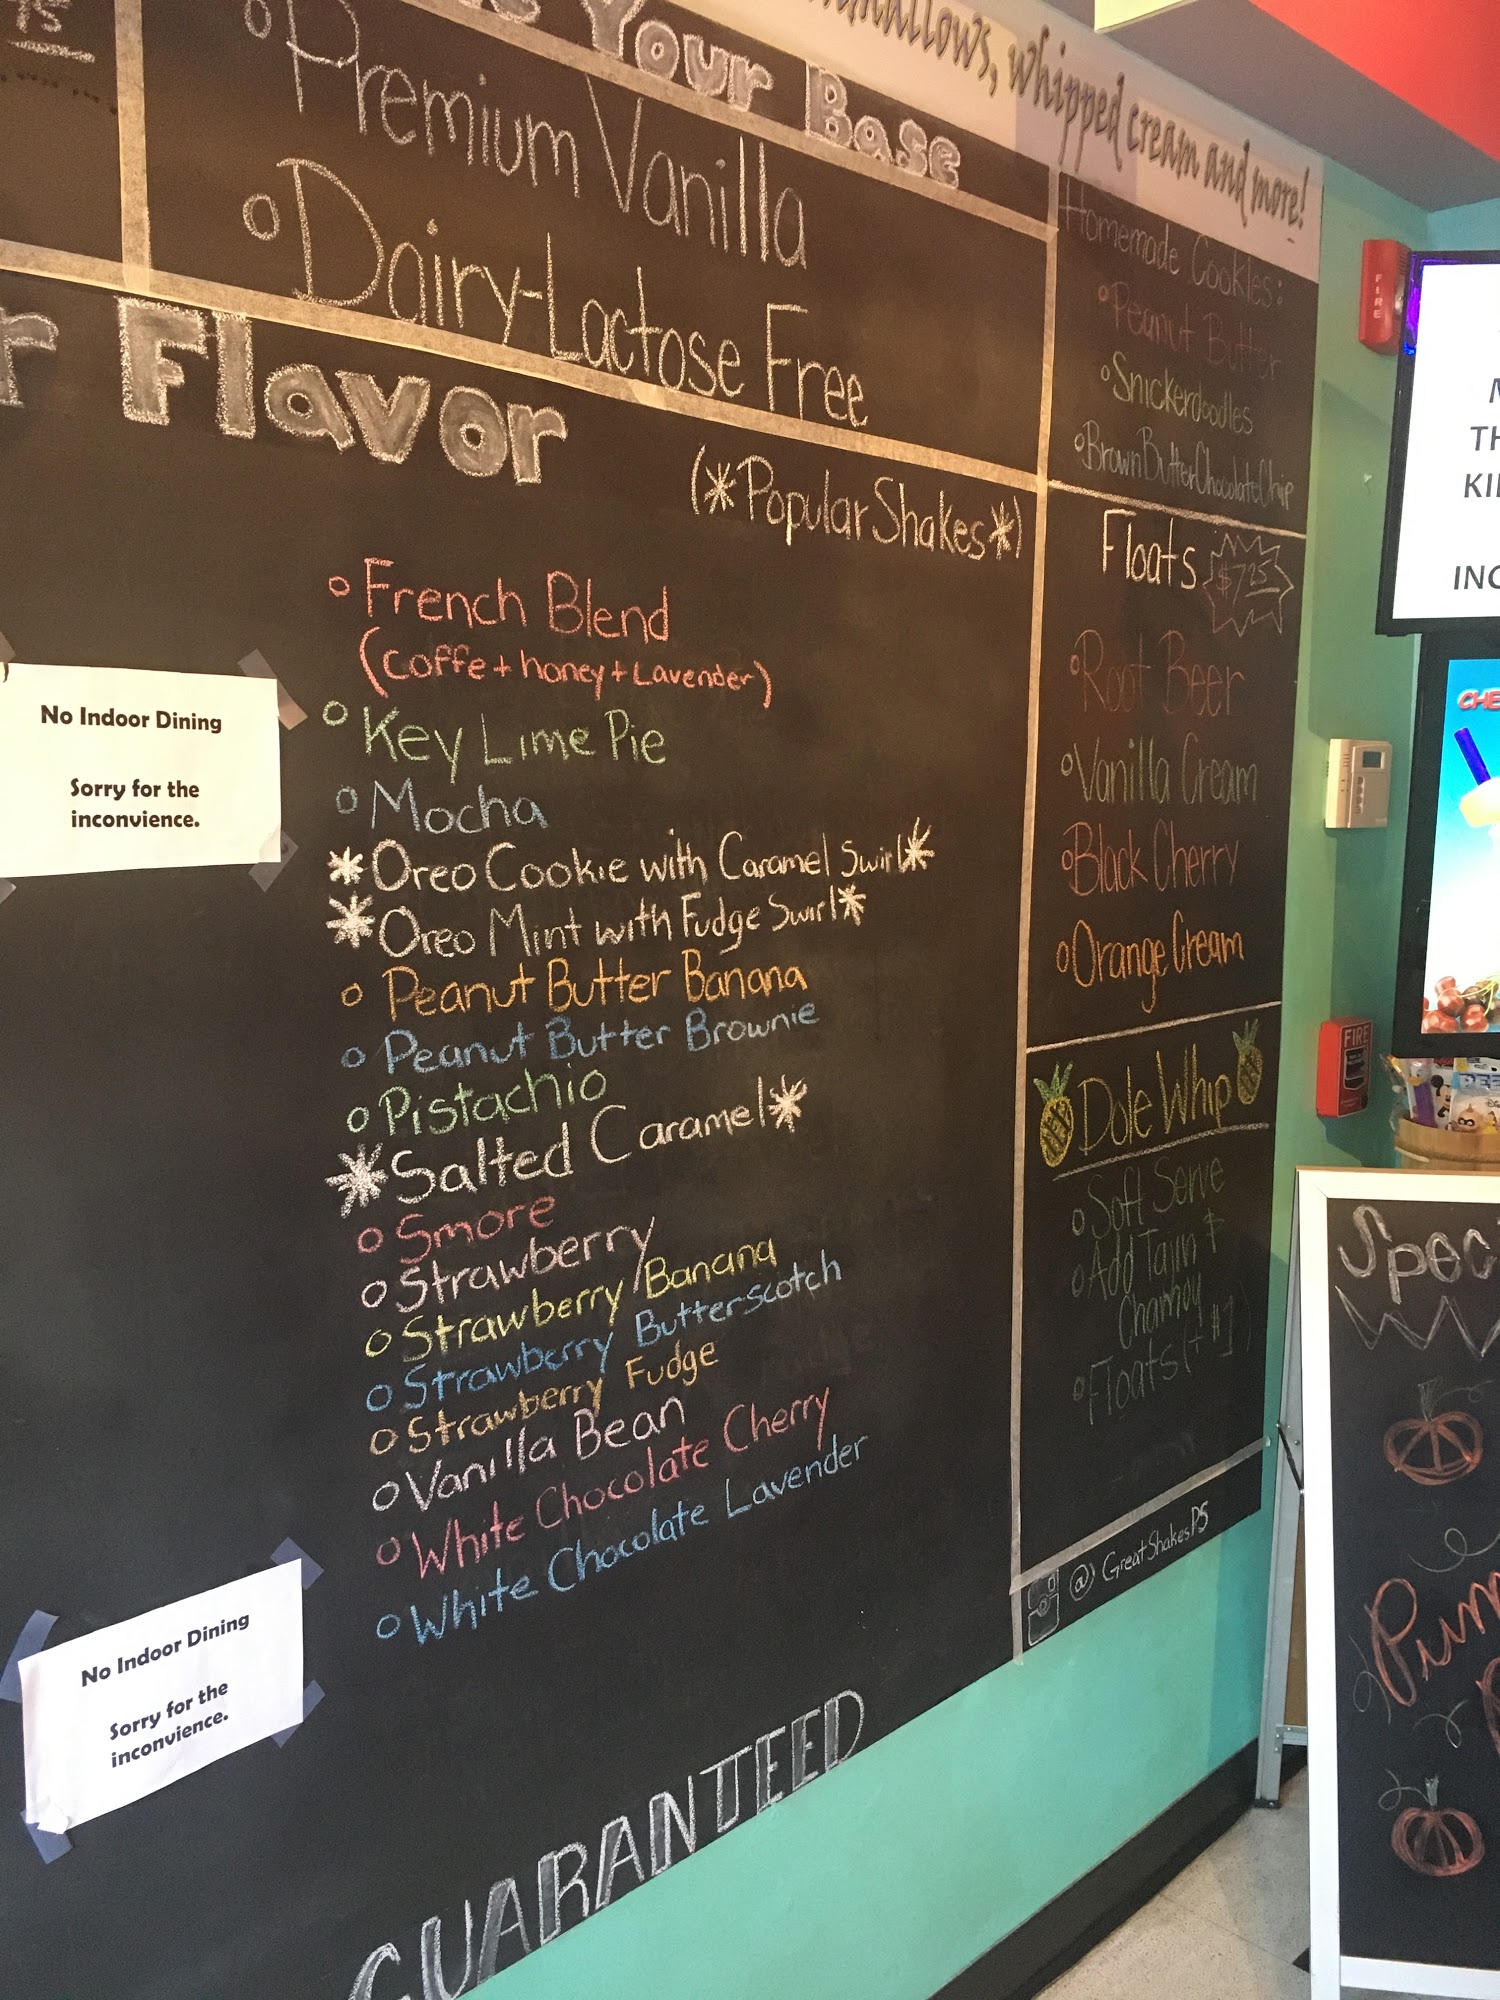 75
Your Base
Premium Vanilla
Dairy-Lactose Free
Flavor
(*Popular Shakes*)
French Blend
(Coffe + honey + Lavender)
Key Lime Pie
Mocha
*Oreo Cookie with Caramel Swirl*
*Oreo Mint with Fudge Swirl*
Peanut Butter Banana
Peanut Butter Brownie
Pistachio
*Salted Caramel*
Smore
Strawberry
Strawberry/Banana
Strawberry Butterscotch
Strawberry Fudge
Vanilla Bean
White Chocolate Cherry
White Chocolate Lavender
GUARANTEED
No Indoor Dining
Sorry for the
inconvience.
No Indoor Dining
Sorry for the
inconvience.
mallows, whipped cream and more!
Homemade Cookies:
Peanut Butter
Snickerdoodles
Brown Butter Chocolate Chip
Floats $7.25
Root Beer
Vanilla Cream
Black Cherry
Orange Cream
Dole Whip
Soft Serve
Add Tajin &
Chamoy
Floats (+ $1)
@) GreatShakesPS
FIRE
TH
KI
INC
CHE
FIRE
PEZ
Spec
W
Pum